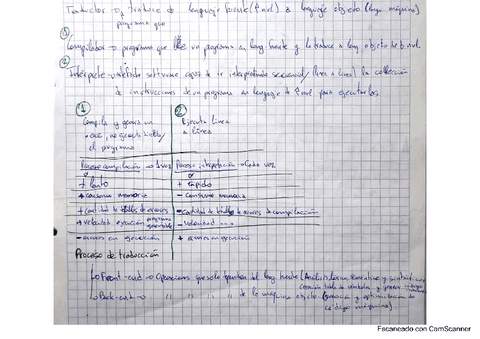 Traductor → Traduce de lenguaje fuente (↑ nivel) a lenguaje objeto (leng. máquina)
programa que
①
Compilador → programa que lee un programa en leng fuente y lo traduce a leng objeto de b nivel.
②
Intérprete → software capaz de ir interpretando secuencial/línea a línea la colección
de instrucciones de un programa en lenguaje de ↑ nivel para ejecutarlas
① ②
Compila y genera un Ejecuta línea
.exe, no ejecuta a línea
el programa
Proceso compilación → 1 vez Proceso interpretación → Cada vez
+ lento + rápido
+ consumo memoria - consumo memoria
+ cantidad de detalles de errores - cantidad de detalles de errores de compilación
+ velocidad ejecución programa - velocidad ...
- errores en ejecución + errores en ejecución
Proceso de traducción
↳ Front-end → Operaciones que solo dependen del leng fuente (Análisis léxico, semántico y sintáctico
creación tabla de símbolos y generar código
↳ Back-end → " " " " de la máquina objeto (generación y optimización de
código máquina)
Escaneado con CamScanner